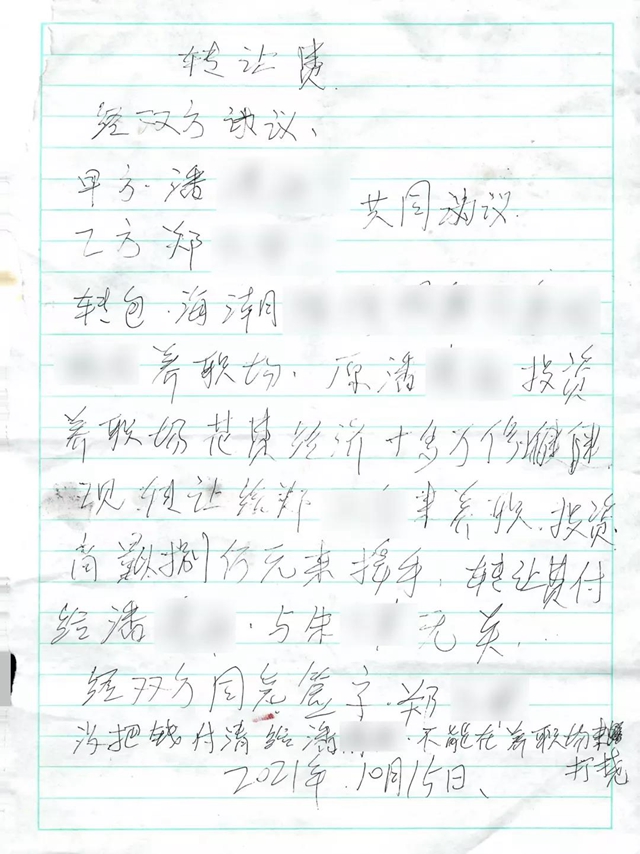 转让费
经双方协议、
甲方·潘
共同协议.
乙方郑
转包·海潮
养职场、原潘 投资
养职场花费经济十多万
现转让给郑 来养职.投资
商 捌仟元来接手.转让费付
给潘 ·与朱 无关.
经双方同意签字·郑
当把钱付清给潘 ·不能在养职场
打扰
2021年.10月15日、